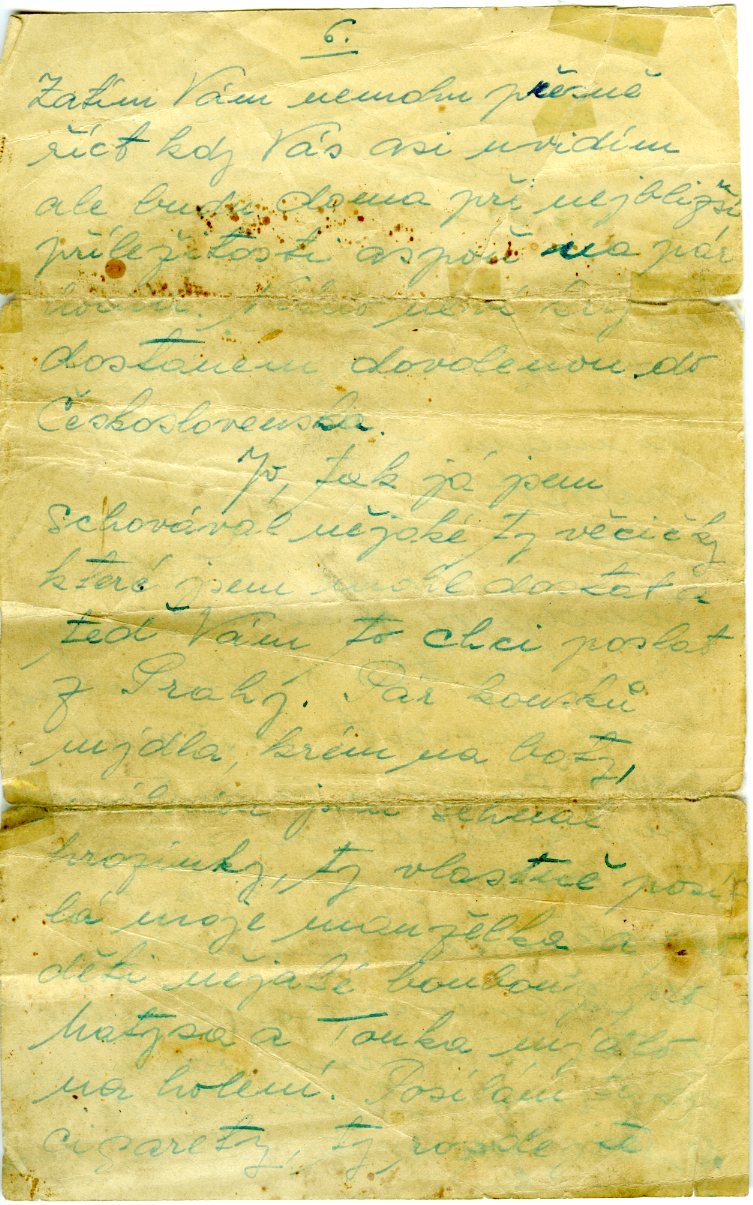 6.
Zatím Vám nemohu přesně
říct kdy Vás asi uvidím
ale budu doma při nejbližší
příležitosti aspoň na pár
hodin. Nikdo neví kdy
dostanem dovolenou do
Československa.
Jo, tak já jsem
schovával nějaké ty věcičky
které jsem mohl dostat a
teď Vám to chci poslat
z Prahy. Pár kousků
mýdla, krém na boty,
jsem sehnal
hrozinky, ty vlastně posí
lá moje manželka a pro
děti nějaké bonbony, pro
Matysa a Tonka mýdlo
na holení. Posílám
cigarety, ty rozdejte